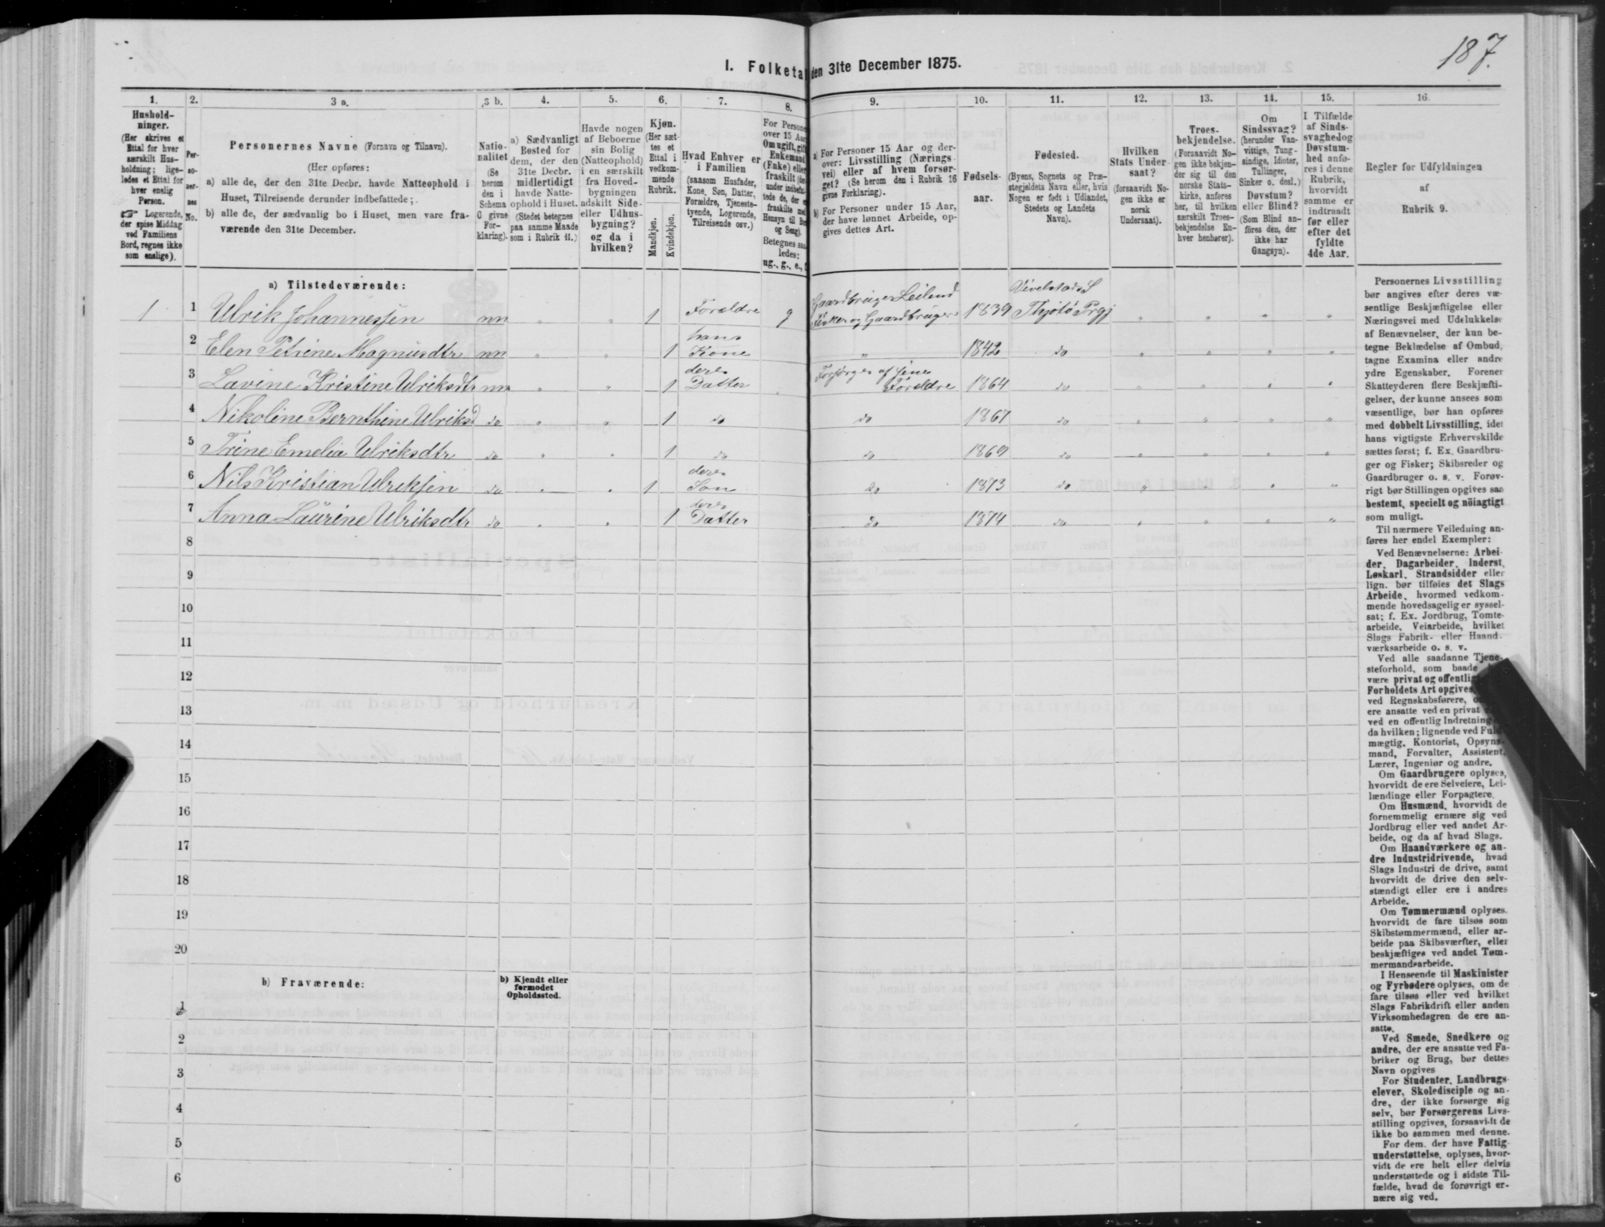 187.
I. Folketal den 31te December 1875.
1. 2. 3 a. 3 b. 4. 5. 6. 7. 8. 9. 10. 11. 12. 13. 14. 15. 16.
Husholdninger.
(Her skrives et Ettal for hver særskilt Husholdning; ligeledes et Ettal for hver enslig Person.
☞ Logerende, der spise Middag ved Familiens Bord, regnes ikke som enslige).
Personernes No.
Personernes Navne (Fornavn og Tilnavn).
(Her opføres:
a) alle de, der den 31te Decbr. havde Natteophold i Huset, Tilreisende derunder indbefattede;
b) alle de, der sædvanlig bo i Huset, men vare fraværende den 31te December.
Nationalitet (Se herom den i Schema C givne Forklaring).
a) Sædvanligt Bosted for dem, der den 31te Decbr. midlertidigt havde Natteophold i Huset. (Stedet betegnes paa samme Maade som i Rubrik 11.)
Havde nogen af Beboerne sin Bolig (Natteophold) i en særskilt fra Hovedbygningen adskilt Side- eller Udhusbygning? og da i hvilken?
Kjøn. (Her sættes et Ettal i vedkommende Rubrik.
Mandkjøn. Kvindekjøn.
Hvad Enhver er i Familien (saasom Husfader, Kone, Søn, Datter, Forældre, Tjenestetyende, Logerende, Tilreisende osv.)
a) For Personer 15 Aar og derover: Livsstilling (Næringsvei) eller af hvem forsørget? (Se herom den i Rubrik 16 givne Forklaring).
b) For Personer under 15 Aar, der have lønnet Arbeide, opgives dettes Art.
Fødselsaar.
Fødested.
(Byens, Sognets og Præstegjeldets Navn eller, hvis Nogen er født i Udlandet, Stedets og Landets Navn).
Hvilken Stats Undersaat?
(forsaavidt Nogen ikke er norsk Undersaat).
Troesbekjendelse.
(Forsaavidt Nogen ikke bekjender sig til den norske Statskirke, anføres her, til hvilken særskilt Troesbekjendelse Enhver henhører).
Om Sindssvag? (herunder Vanvittige, Tungsindige, Idioter, Tullinger, Sinker o. desl.)
Døvstum? eller Blind? (Som Blind anføres den, der ikke har Gangsyn).
I Tilfælde af Sindssvaghed og Døvstumhed anføres i denne Rubrik, hvorvidt samme er indtraadt før eller efter det fyldte 4de Aar.
Regler for Udfyldningen af Rubrik 9.
a) Tilstedeværende:
1 1 Ulrik Johannessen nn " " 1 Forældre g Gaardbruger Leilend 1839 Thjøtø Prgj " " " "
2 Elen Petrine Magnusdtr nn " " 1 hans Kone " 1842 do " " " "
3 Lavine Kristine Ulriksdtr nn " " 1 deres Datter Forsørges af sine Forældre 1864 do " " " "
4 Nikoline Bernthine Ulriksd do " " 1 do do 1867 do " " " "
5 Trine Emelia Ulriksdtr do " " 1 do do 1869 do " " " "
6 Nils Kristian Ulriksen do " " 1 deres Søn do 1873 do " " " "
7 Anna Laurine Ulriksdtr do " " 1 deres Datter do 1874 do " " " "
8
9
10
11
12
13
14
15
16
17
18
19
20
b) Fraværende:
b) Kjendt eller formodet Opholdssted.
1
2
3
4
5
6
Personernes Livsstilling
bør angives efter deres væsentlige Beskjæftigelse eller
Næringsvei med Udelukkelse
af Benævnelser, der kun betegne Beklædelse af Ombud,
tagne Examina eller andre
ydre Egenskaber. Forener
Skatteyderen flere Beskjæftigelser, der kunne ansees som
væsentlige, bør han opføres
med dobbelt Livsstilling, idet
hans vigtigste Erhvervskilde
sættes først; f. Ex. Gaardbruger og Fisker; Skibsreder og
Gaardbruger o. s. v. Forøvrigt bør Stillingen opgives saa
bestemt, specielt og nøiagtigt
som muligt.
Til nærmere Veiledning anføres her endel Exempler:
Ved Benævnelserne: Arbeider, Dagarbeider, Inderst,
Løskarl, Strandsidder eller
lign. bør tilføies det Slags
Arbeide, hvormed vedkommende hovedsagelig er sysselsat; f. Ex. Jordbrug, Tomtearbeide, Veiarbeide, hvilket
Slags Fabrik- eller Haandværksarbeide o. s. v.
Ved alle saadanne Tjenesteforhold, som baade
være privat og offentlig
Forholdets Art opgives,
ved Regnskabsførere,
ere ansatte ved en privat
ved en offentlig Indretning
da hvilken; lignende ved Fuldmægtig, Kontorist, Opsynsmand, Forvalter, Assistent,
Lærer, Ingeniør og andre.
Om Gaardbrugere oplyses,
hvorvidt de ere Selveiere, Leilændinge eller Forpagtere.
Om Husmænd, hvorvidt de
fornemmelig ernære sig ved
Jordbrug eller ved andet Arbeide, og da af hvad Slags.
Om Haandværkere og andre Industridrivende, hvad
Slags Industri de drive, samt
hvorvidt de drive den selvstændigt eller ere i andres
Arbeide.
Om Tømmermænd oplyses,
hvorvidt de fare tilsøs som
Skibstømmermænd, eller arbeide paa Skibsværfter, eller
beskjæftiges ved andet Tømmermandsarbeide.
I Henseende til Maskinister
og Fyrbødere oplyses, om de
fare tilsøs eller ved hvilket
Slags Fabrikdrift eller anden
Virksomhedsgren de ere ansatte.
Ved Smede, Snedkere og
andre, der ere ansatte ved Fabriker og Brug, bør dettes
Navn opgives
For Studenter, Landbrugselever, Skoledisciple og andre, der ikke forsørge sig
selv, bør Forsørgerens Livsstilling opgives, forsaavidt de
ikke bo sammen med denne.
For dem, der have Fattigunderstøttelse, oplyses, hvorvidt de ere helt eller delvis
understøttede og i sidste Tilfælde, hvad de forøvrigt ernære sig ved.